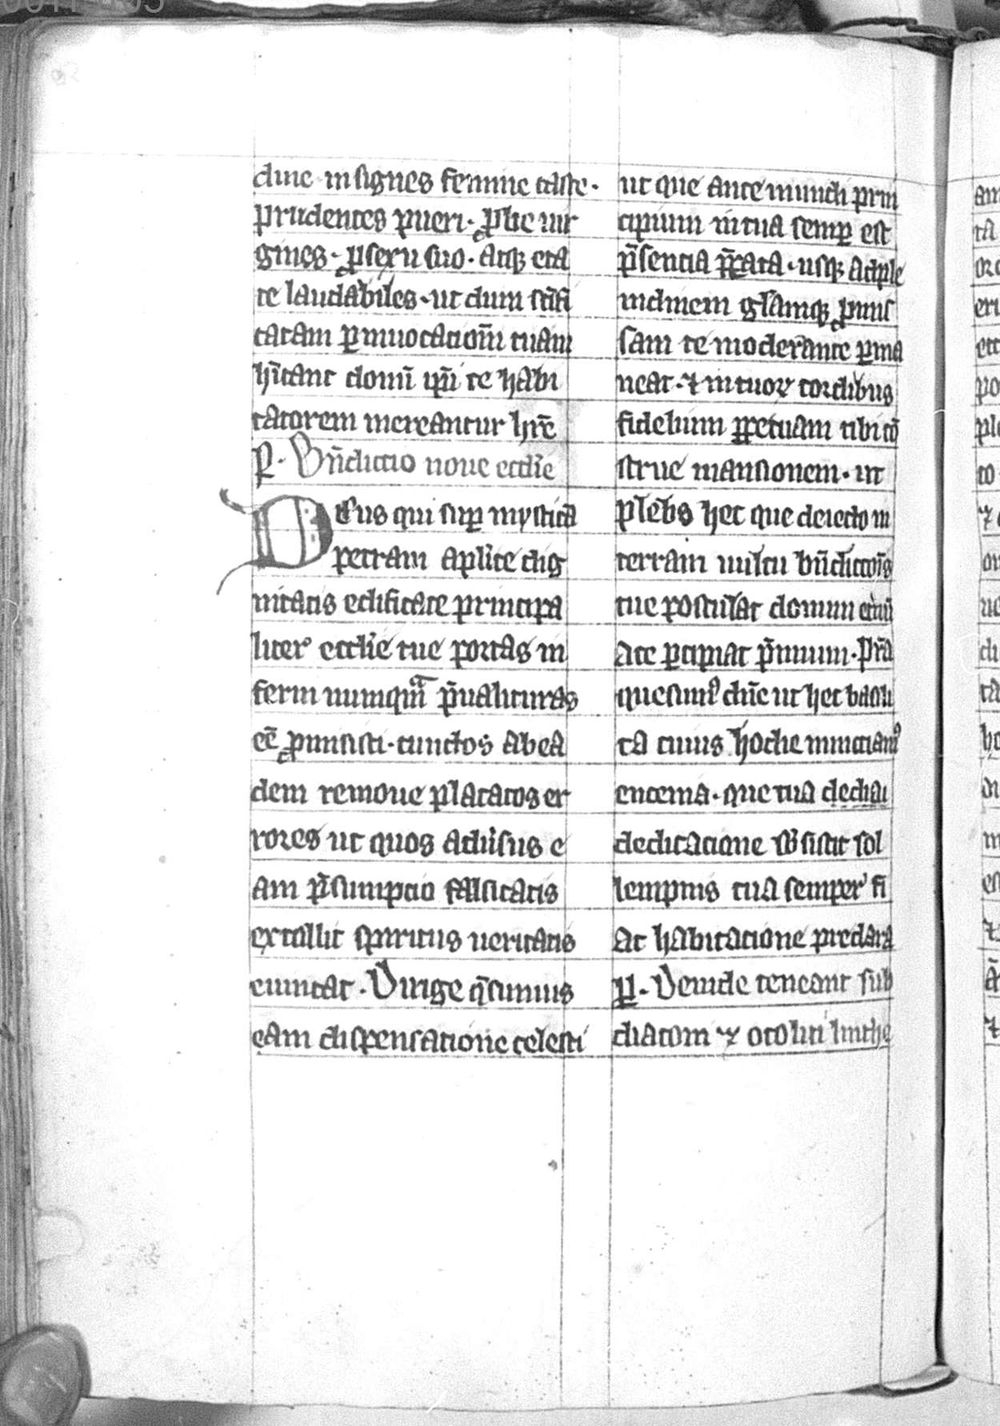 diue insignes femine caste.
prudentes pueri. ꝓbe uir
gines. ꝓ sexu suo. atqꝫ eta
te laudabiles. ut dum sc̄ifi
catam ꝑ inuocacion̄ tuam
h̄itant domū ip̄i te habi
tatorem mereantur hr̄e
Bn̄dictio noue eccl̄ie
Deus qui suꝑ mystica
petram apl̄ice dig
nitatis edificate principa
liter eccl̄ie tue portas in
feri nunquā p̄ualituras
eē̄ ꝓmisisti. cunctos ab ea
dem remoue placatos er
rores ut quos aduersus e
am p̄sumptio falsitatis
extollit spiritus ueritatis
euincat. Dirige q̄sumus
eam dispensatione celesti
ut que ante mundi prin
cipium in tua semꝑ est
p̄sentia ꝑata. usqꝫ ad ple
nidinem gl̄iamqꝫ ꝓmis
sam te moderante ꝑma
neat. ⁊ in tuoꝝ cordibus
fidelium ꝑpetuam tibi cō
strue mansionem. ut
plebs hec que deiecto in
terram uultu bn̄dictōis
tue postulat domum
ate ꝑcipiat p̄mium. Pr̄a
quesumꝰ dn̄e ut hec basili
ca cuius hodie nunciamꝰ
encenia. que tua
dedicatione sb̄sistit sol
lempnis tua semper fi
at habitatione preclara
Deinde teneant sub
diacom ⁊ acoliti linthe